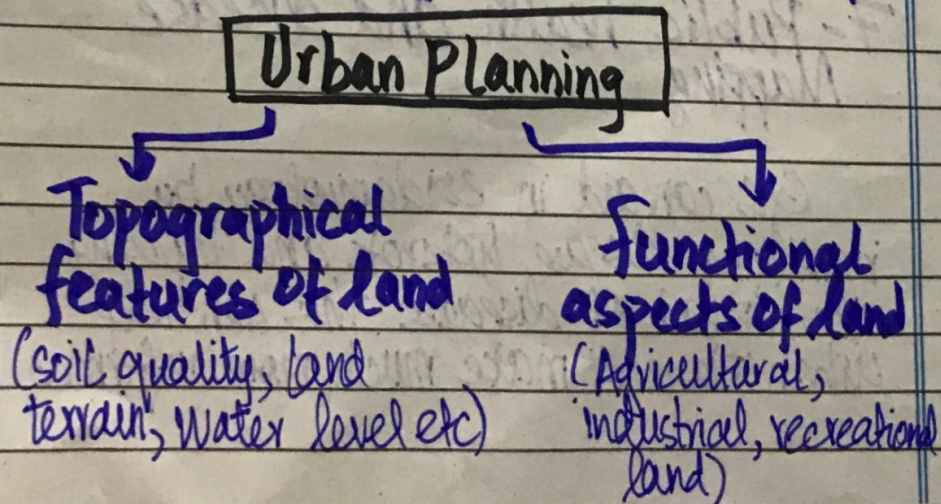 Urban Planning
Topographical
features of land
(soil quality, land
terrain, Water level etc)
functional
aspects of land
(Agricultural,
industrial, recreational
land)